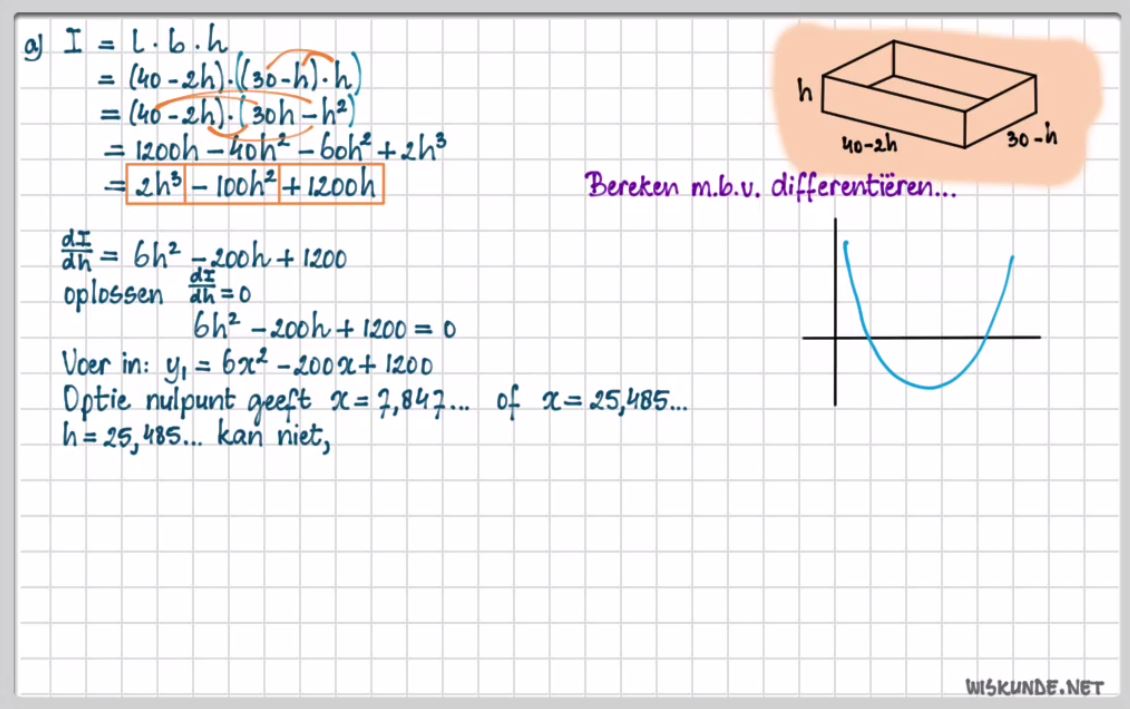 a) I = l · b · h
= (40 - 2h) · ((30 - h) · h)
= (40 - 2h) · (30h - h²)
= 1200h - 40h² - 60h² + 2h³
= 2h³ - 100h² + 1200h
h
40-2h
30-h
Bereken m.b.v. differentiëren...
dI/dh = 6h² - 200h + 1200
oplossen dI/dh = 0
6h² - 200h + 1200 = 0
Voer in: y₁ = 6x² - 200x + 1200
Optie nulpunt geeft x = 7,847... of x = 25,485...
h = 25,485... kan niet,
WISKUNDE.NET